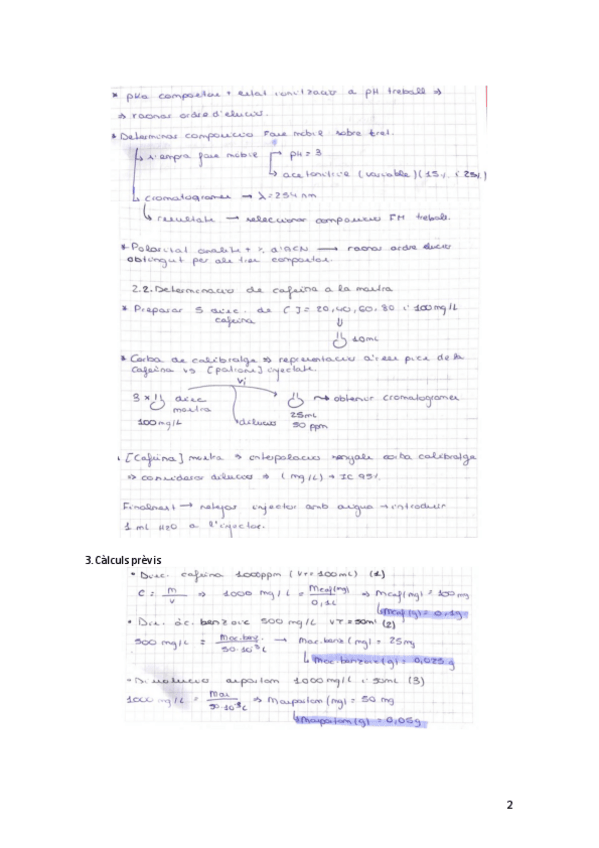 * pKa compostos + estat ionització a pH treball ⇒
⇒ raonar ordre d'elució.
* Determinar composició fase mòbil sobre tret.
↳ sempre fase mòbil → pH = 3
↳ acetonitril (variable) (15% i 25%)
↳ cromatogrames → λ = 254 nm
↳ resultats → seleccionar composició FM treball.
* Polaritat analits + % d'ACN → raonar ordre elució
obtingut pels tres compostos.
2.2. Determinació de cafeïna a la mostra
* Preparar 5 disc. de [ ] = 20, 40, 60, 80 i 100 mg/L
cafeïna ⇓
10mL
* Corba de calibratge ⇒ representació àrees pics de la
cafeïna vs [patrons] injectats.
Vi
3 × disc → obtenir cromatogrames
mostra 25mL
100 mg/L dilució 50 ppm
· [Cafeïna] mostra ⇒ interpolació senyals corba calibratge
⇒ considerar dilucions ⇒ (mg/L) + IC 95%.
Finalment → netejar injector amb aigua → introduir
1 mL H2O a l'injector.
3. Càlculs prèvis
* Disc. cafeïna 1000ppm (VT = 100mL) (1)
C = m/V ⇒ 1000 mg/L = mcaf(mg)/0,1L ⇒ mcaf(mg) = 100 mg
↳ mcaf(g) = 0,1g
* Dis. àc. benzoic 500 mg/L VT = 50ml (2)
500 mg/L = mac.benz./50·10⁻³L → mac.benz(mg) = 25mg
↳ mac.benzoic(g) = 0,025 g
aspartam 1000 mg/L i 50mL (3)
1000 mg/L = mas/50·10⁻³L ⇒ maspartam(mg) = 50 mg
↳ maspartam(g) = 0,05g
2